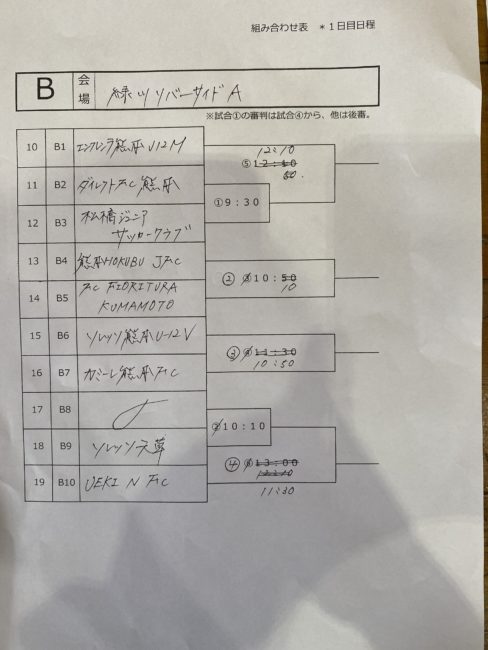 組み合わせ表 ＊１日目日程
B 会場 緑川リバーサイドA
※試合①の審判は試合④から、他は後審。
10 B1 エンフレンテ熊本U12M
12:10
⑤12:10
50.
11 B2 ダイレクトFC熊本
①9:30
12 B3 松橋ジュニア
サッカークラブ
13 B4 熊本HOKUBU JFC
② ③10:50
10
14 B5 FC FIORITURA
KUMAMOTO
15 B6 ソレッソ熊本U-12V
③ ④11:30
10:50
16 B7 カミーレ熊本FC
17 B8
②10:10
18 B9 ソレッソ天草
④ ⑥13:00
12:10
11:30
19 B10 UEKI N FC